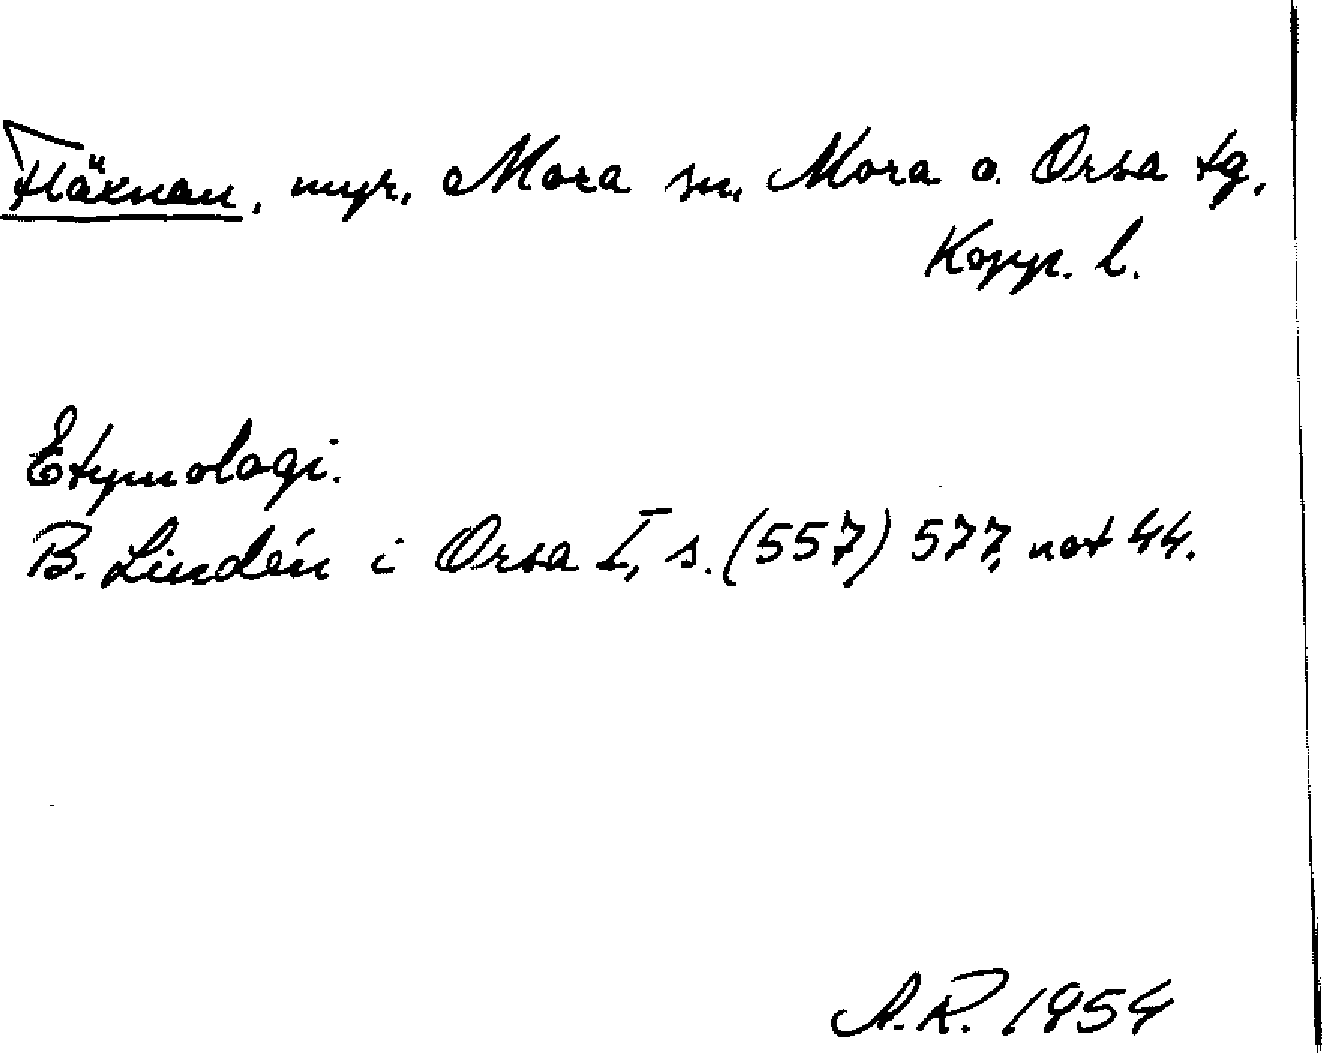 Fläxnan, myr, Mora sn, Mora o. Orsa tg,
Kopp. l.
Etymologi.
B. Lindén i Orsa I, s. (557) 577, not 44.
A.R. 1954